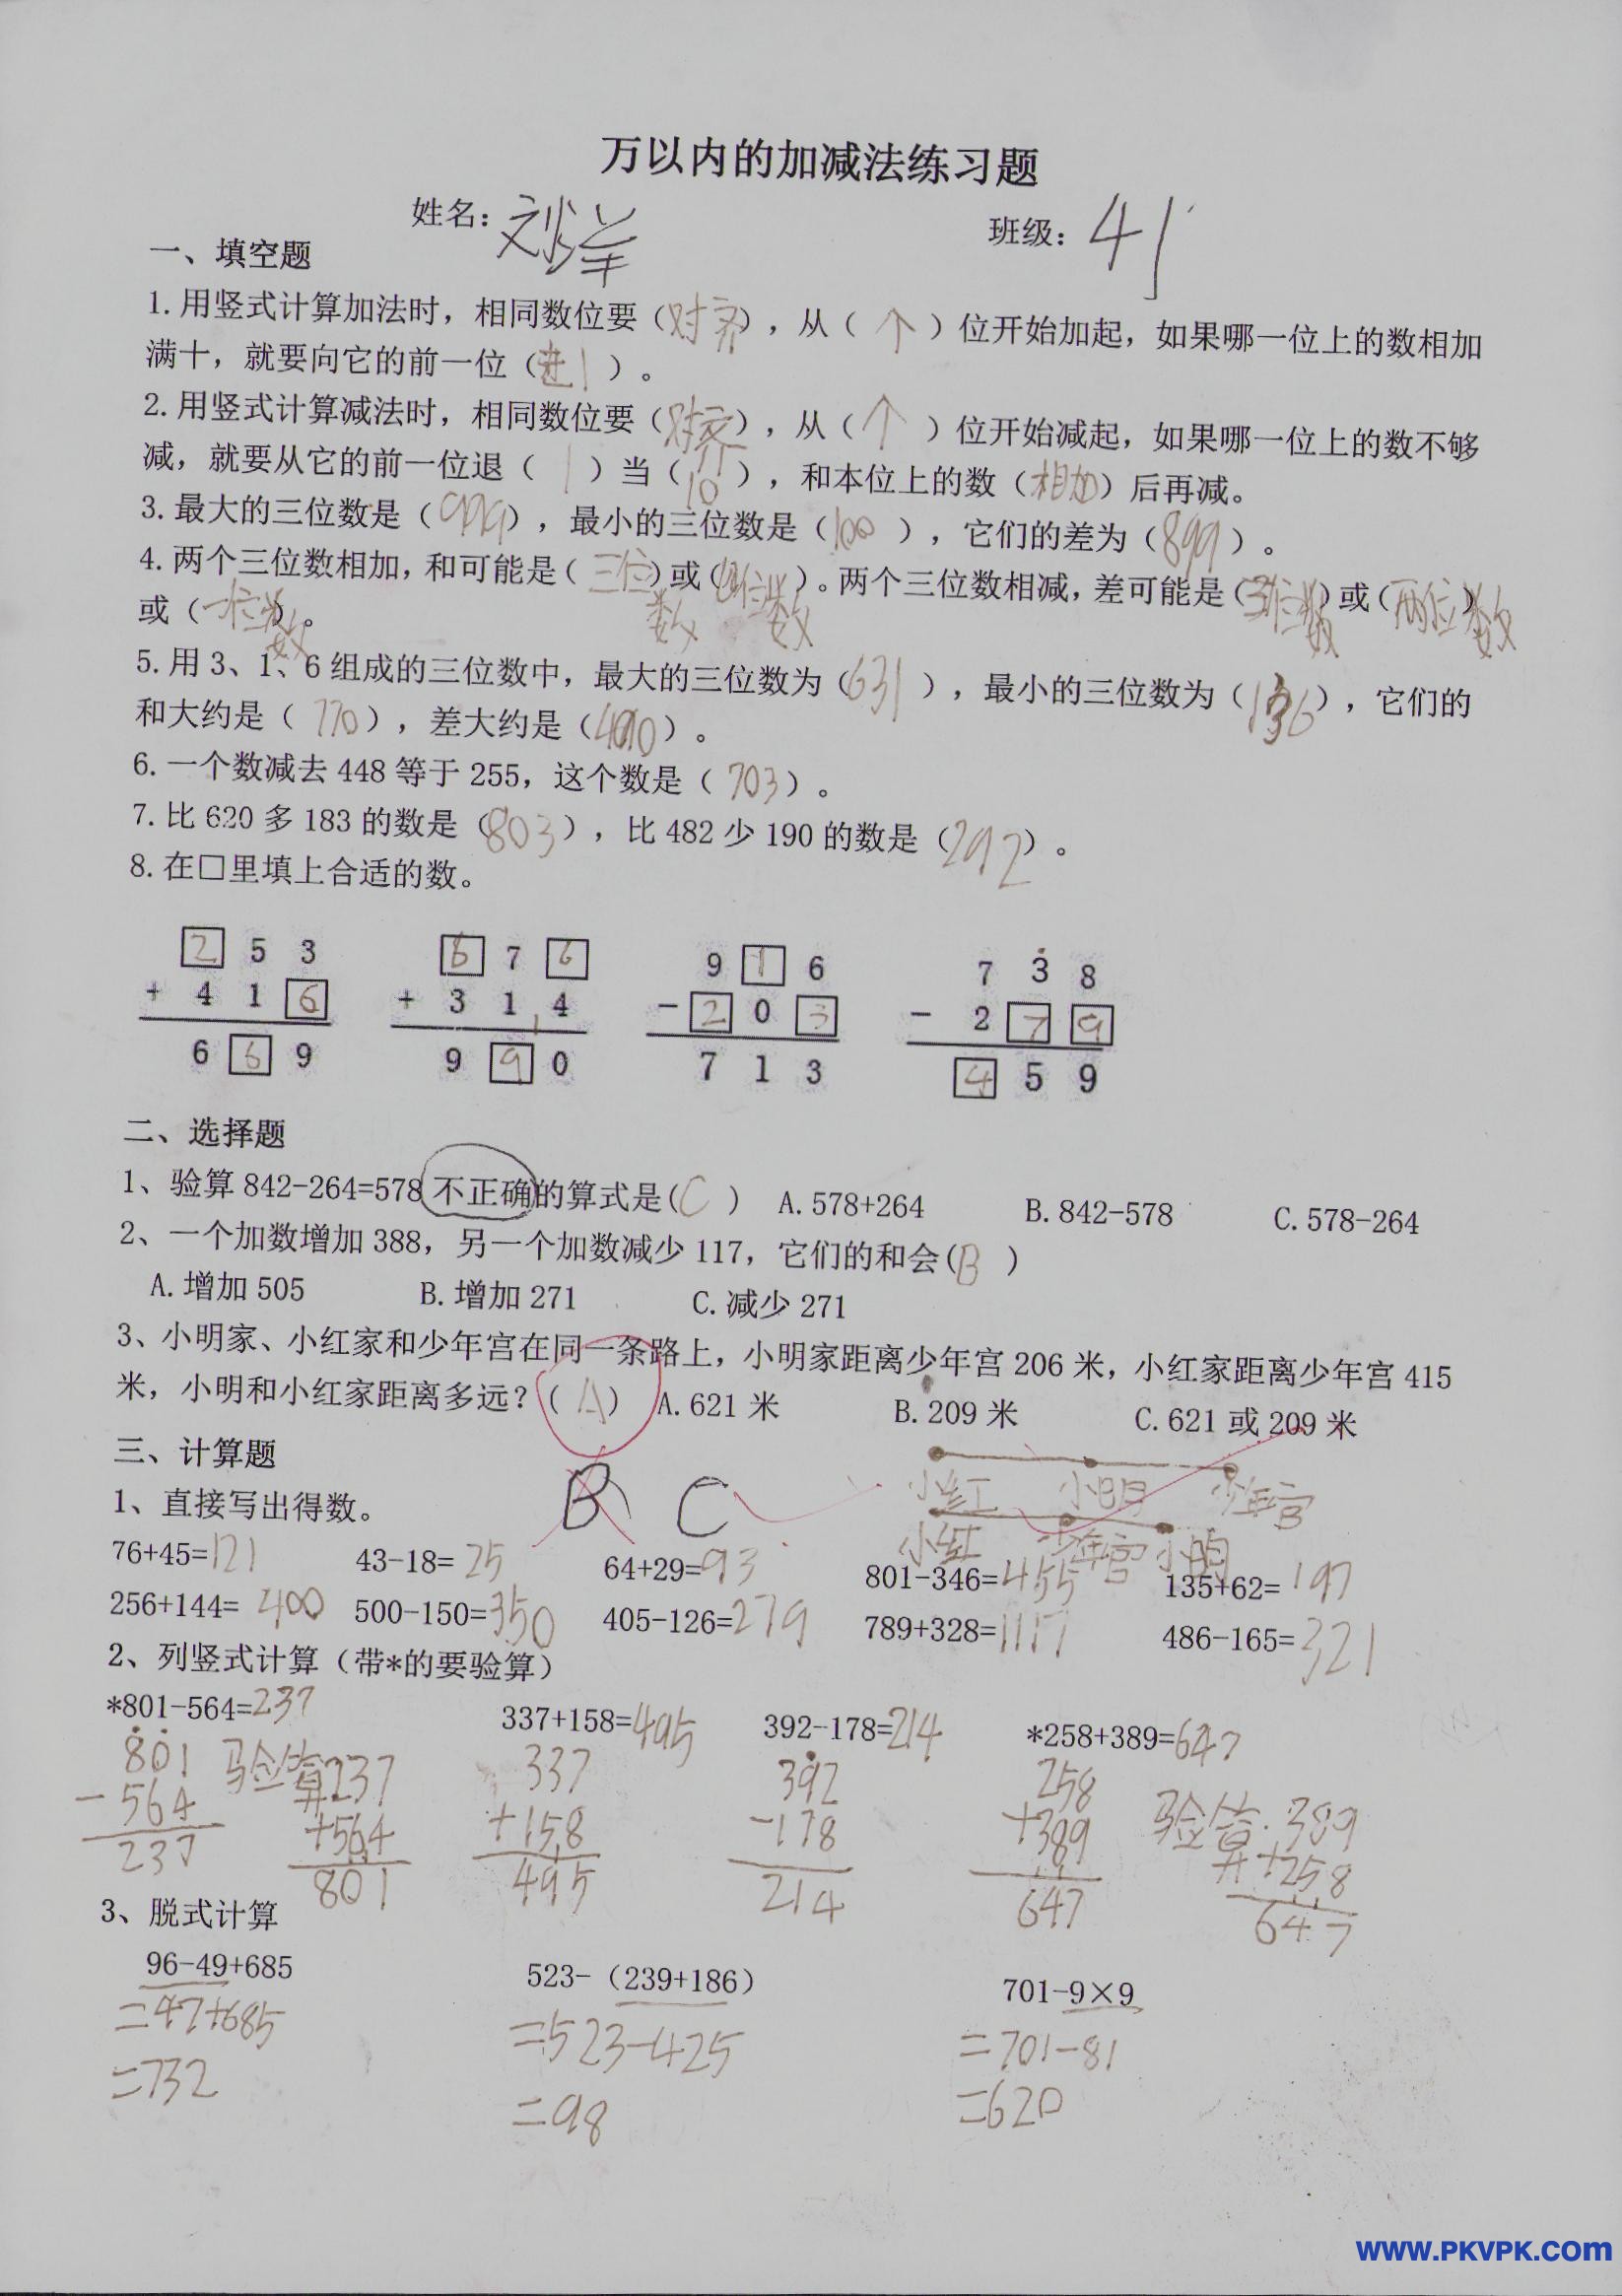 万以内的加减法练习题
姓名：刘洋 班级：41
一、填空题
1. 用竖式计算加法时，相同数位要（对齐），从（个）位开始加起，如果哪一位上的数相加
满十，就要向它的前一位（进1）。
2. 用竖式计算减法时，相同数位要（对齐），从（个）位开始减起，如果哪一位上的数不够
减，就要从它的前一位退（1）当（10），和本位上的数（相加）后再减。
3. 最大的三位数是（999），最小的三位数是（100），它们的差为（899）。
4. 两个三位数相加，和可能是（三位数）或（四位数）。两个三位数相减，差可能是（三位数）或（两位数）
或（一位数）。
5. 用 3、1、6 组成的三位数中，最大的三位数为（631），最小的三位数为（136），它们的
和大约是（770），差大约是（490）。
6. 一个数减去 448 等于 255，这个数是（703）。
7. 比 620 多 183 的数是（803），比 482 少 190 的数是（292）。
8. 在□里填上合适的数。
2 5 3 6 7 6 9 1 6 7 3 8
+ 4 1 6 + 3 1 4 - 2 0 3 - 2 7 9
6 6 9 9 9 0 7 1 3 4 5 9
二、选择题
1、验算 842-264=578 不正确的算式是(C) A. 578+264 B. 842-578 C. 578-264
2、一个加数增加 388，另一个加数减少 117，它们的和会(B)
A. 增加 505 B. 增加 271 C. 减少 271
3、小明家、小红家和少年宫在同一条路上，小明家距离少年宫 206 米，小红家距离少年宫 415
米，小明和小红家距离多远？(A) A. 621 米 B. 209 米 C. 621 或 209 米
三、计算题
B C 小红 小明 少年宫
1、直接写出得数。
小红 少年宫 小明
76+45=121 43-18=25 64+29=93 801-346=455 135+62=197
256+144=400 500-150=350 405-126=279 789+328=1117 486-165=321
2、列竖式计算（带*的要验算）
*801-564=237 337+158=495 392-178=214 *258+389=647
801 验算237 337 392 258 验算：389
-564 +564 +158 -178 +389 +258
237 801 495 214 647 647
3、脱式计算
96-49+685 523-（239+186） 701-9×9
=47+685 =523-425 =701-81
=732 =98 =620
www.PKVPK.com